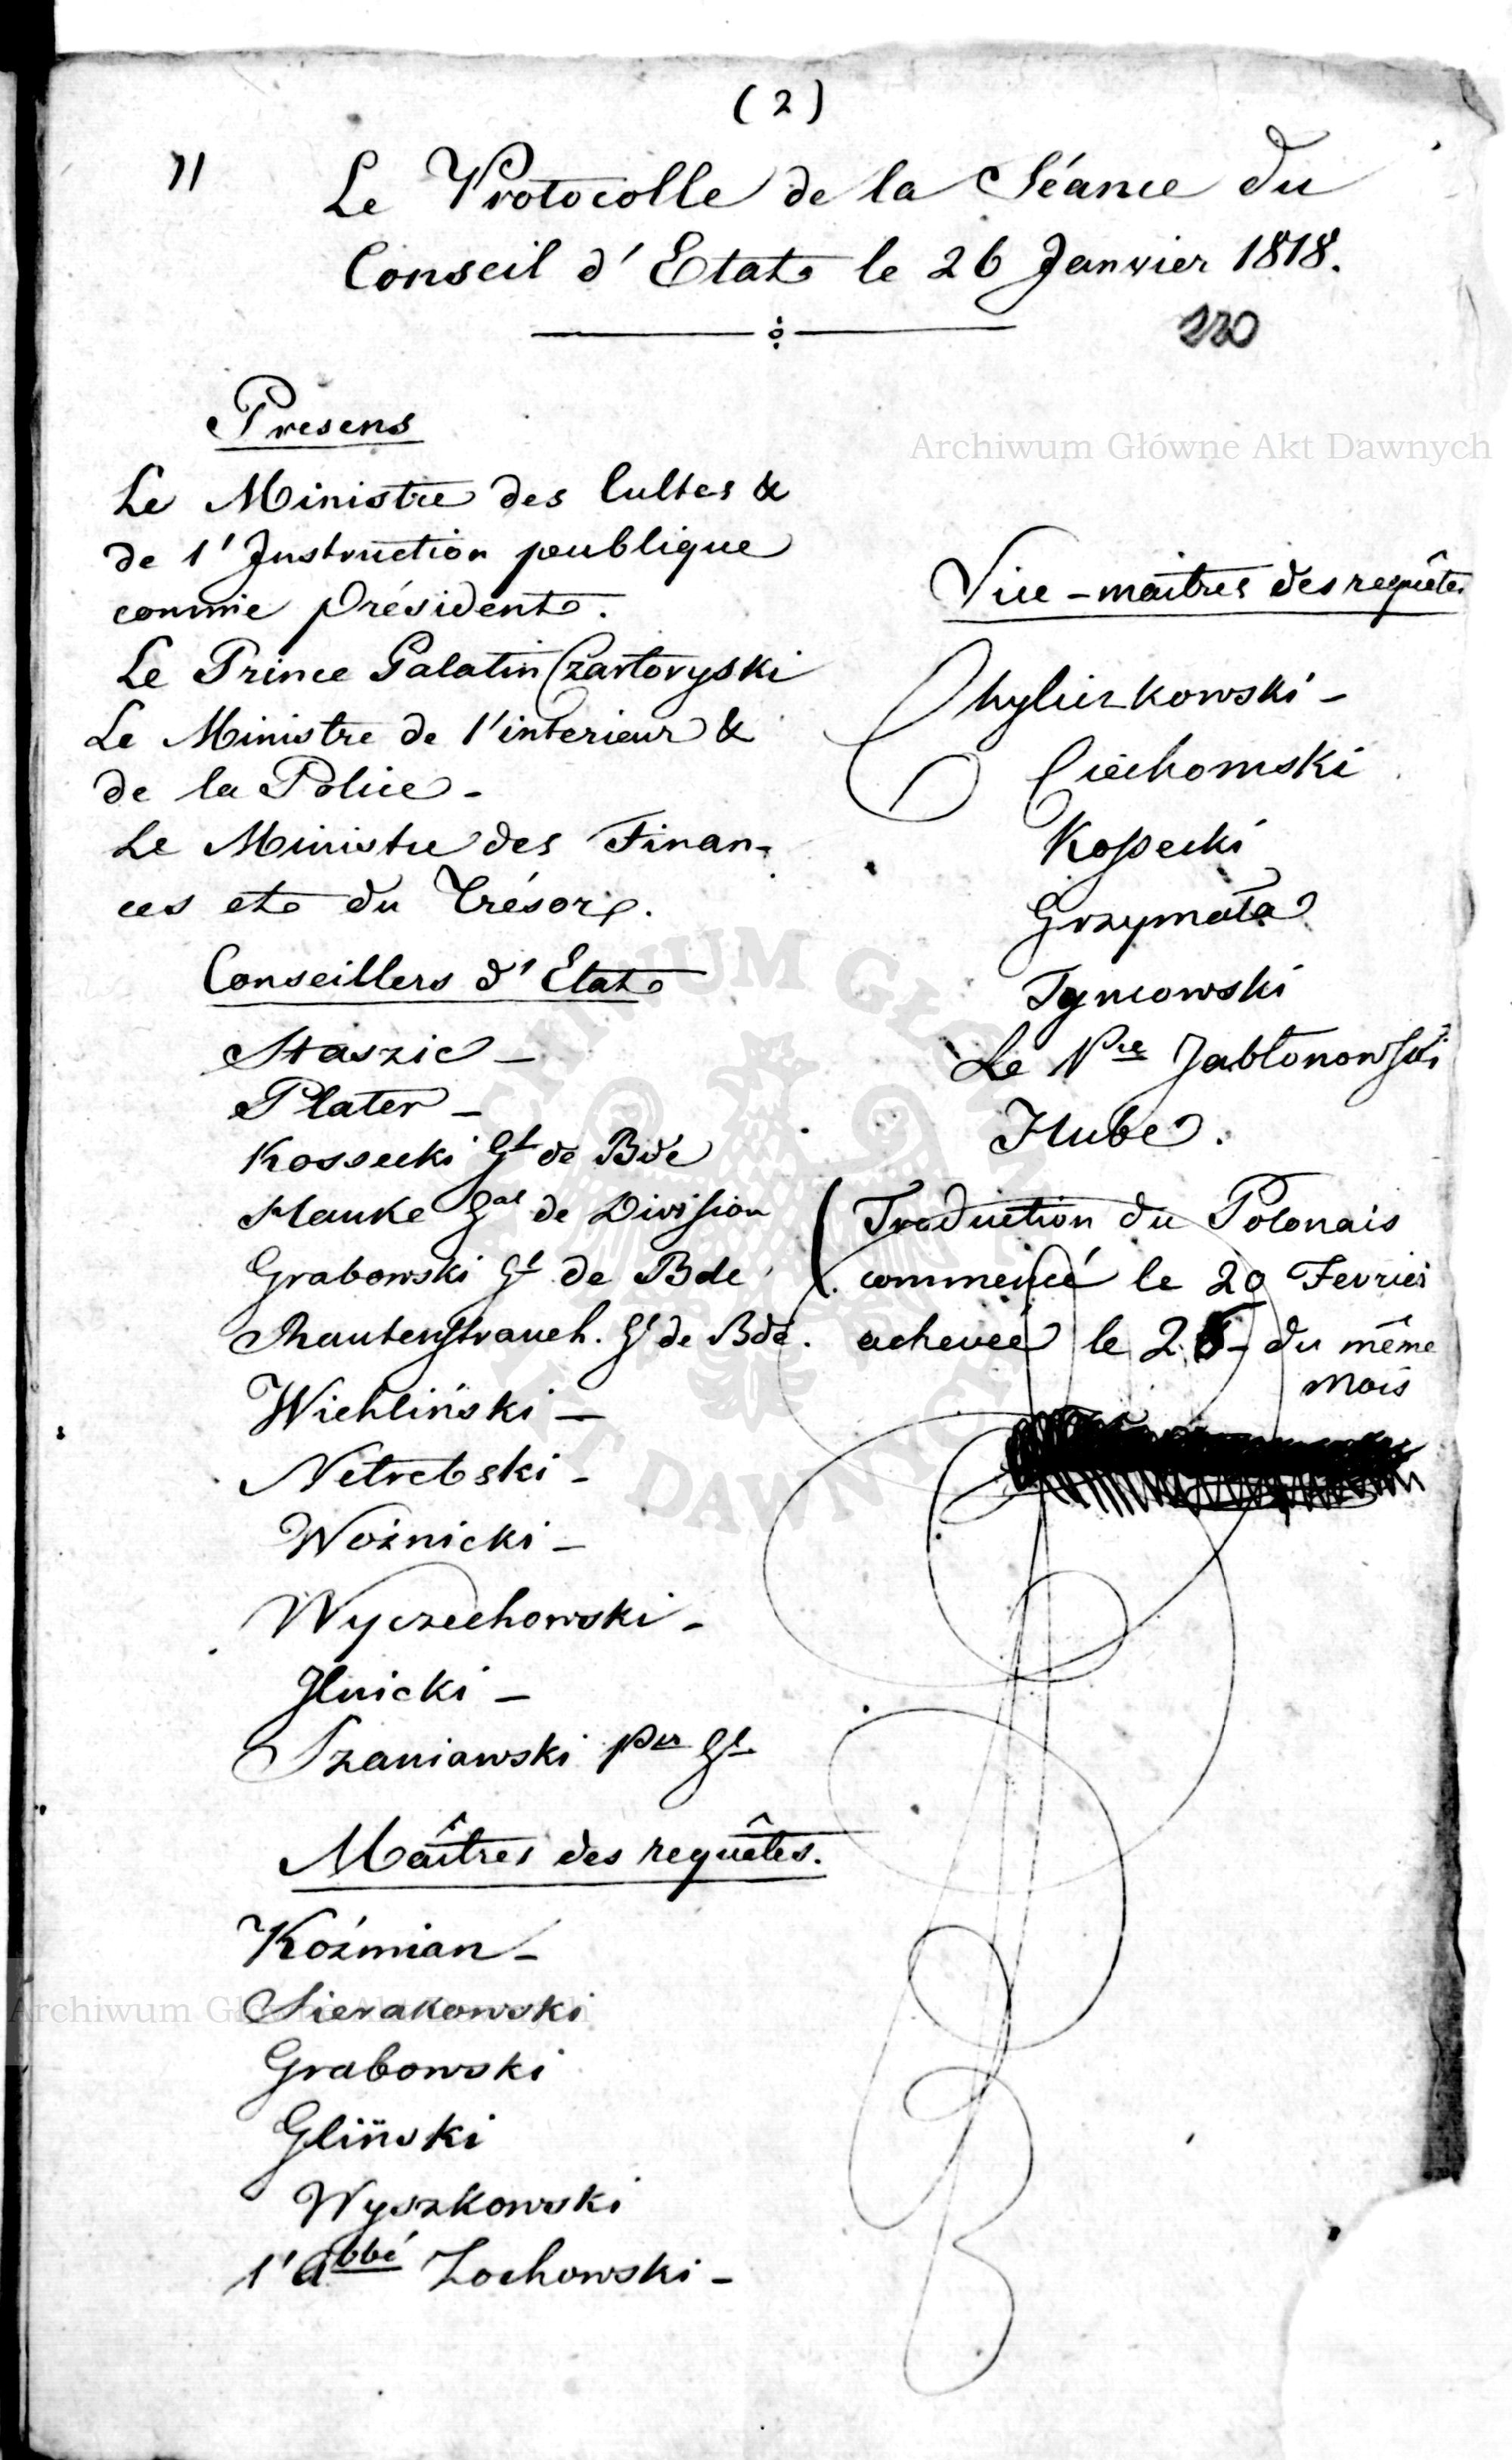 (2)
11
Le Protocolle de la Séance du
Conseil d'Etat le 26 Janvier 1818.
220
Presens
Le Ministre des Cultes &
de l'Instruction publique
comme Président.
Le Prince Palatin Czartoryski
Le Ministre de l'interieur &
de la Police -
Le Ministre des Finan-
ces et du Trésor.
Conseillers d'Etat
Staszic -
Plater -
Kossecki Gl de Bde
Hauke Gal de Division
Grabowski Gl de Bde
Rautenstrauch. Gl de Bde.
Wichliński -
Netrebski -
Woźnicki -
Wyczechowski -
Ilnicki -
Szaniawski Pur Gl
Maîtres des requêtes.
Koźmian -
Sierakowski
Grabowski
Gliński
Wyszkowski
l'Abbé Zochowski -
Vice-maîtres des requêtes
Chyliczkowski -
Ciechomski
Kossecki
Grzymała
Tymowski
Le Pce Jabłonowski
Hube.
Traduction du Polonais
commencé le 20 Fevrier
acheveé le 25 du même
mois
Archiwum Główne Akt Dawnych
ARCHIWUM GŁÓWNE AKT DAWNYCH
Archiwum Główne Akt Dawnych